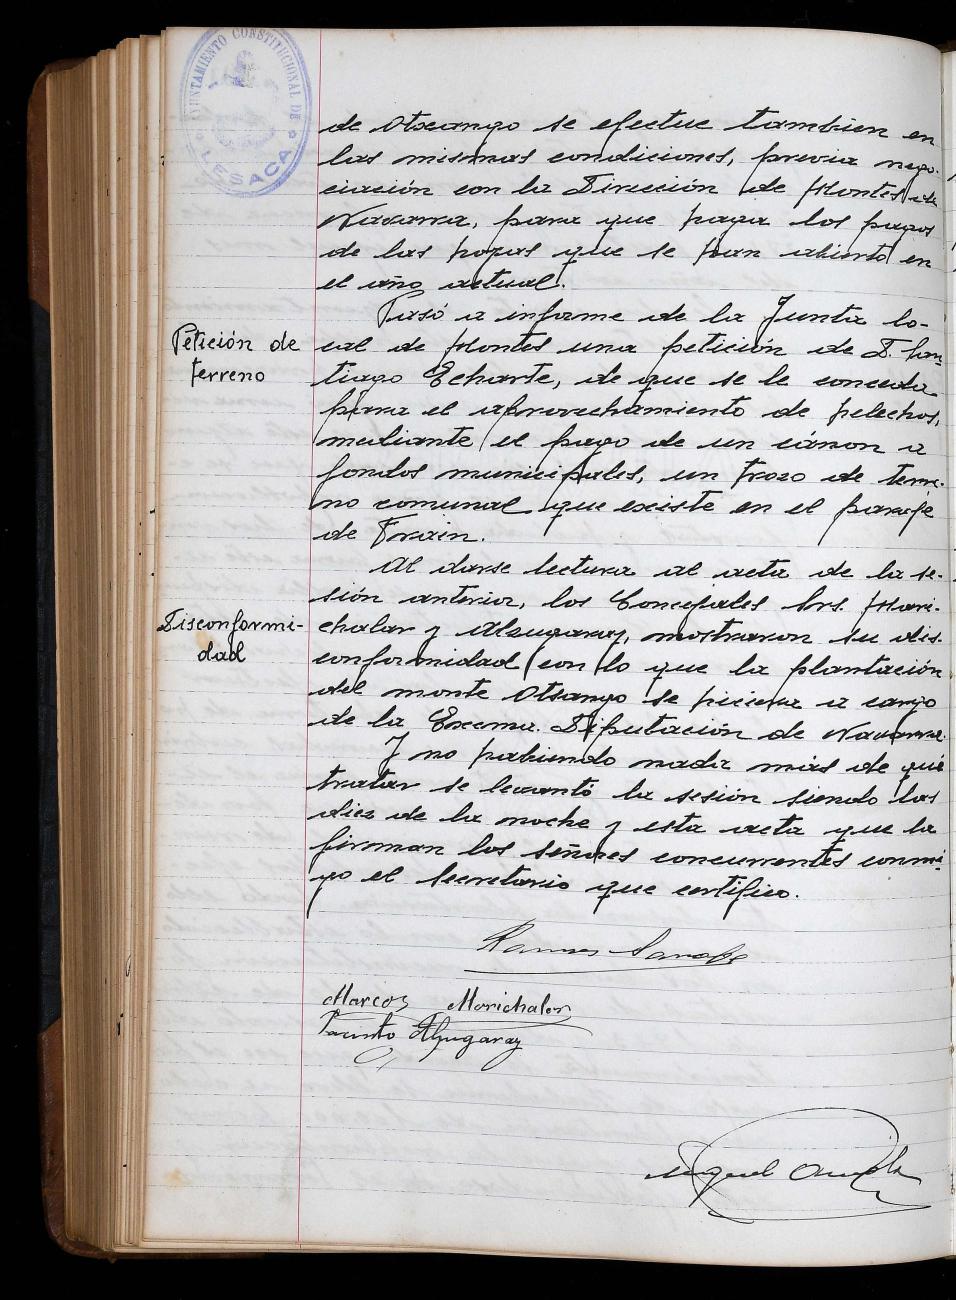 AYUNTAMIENTO CONSTITUCIONAL DE
LESACA
de Otsango se efectue tambien en
las mismas condiciones, previa nego-
ciación con la Dirección de Montes de
Navarra, para que haga los pagos
de las hoyas que se han abierto en
el año actual.
Petición de
terreno
Pasó a informe de la Junta lo-
cal de Montes una petición de D. San-
tiago Echarte, de que se le conceda
para el aprovechamiento de helechos,
mediante el pago de un cánon a
fondos municipales, un trozo de terre-
no comunal que existe en el paraje
de Frain.
Al darse lectura al acta de la se-
sión anterior, los Concejales Srs. Mari-
Disconformi-
dad
chalar y Alzugaray, mostraron su dis-
conformidad con lo que la plantación
del monte Otsango se hiciera a cargo
de la Excma. Diputación de Navarra.
Y no habiendo nada más de qué
tratar se levantó la sesión siendo las
diez de la noche y esta acta que la
firman los señores concurrentes conmi-
go el Secretario que certifico.
Marcos Marichalar
Alzugaray
Miguel